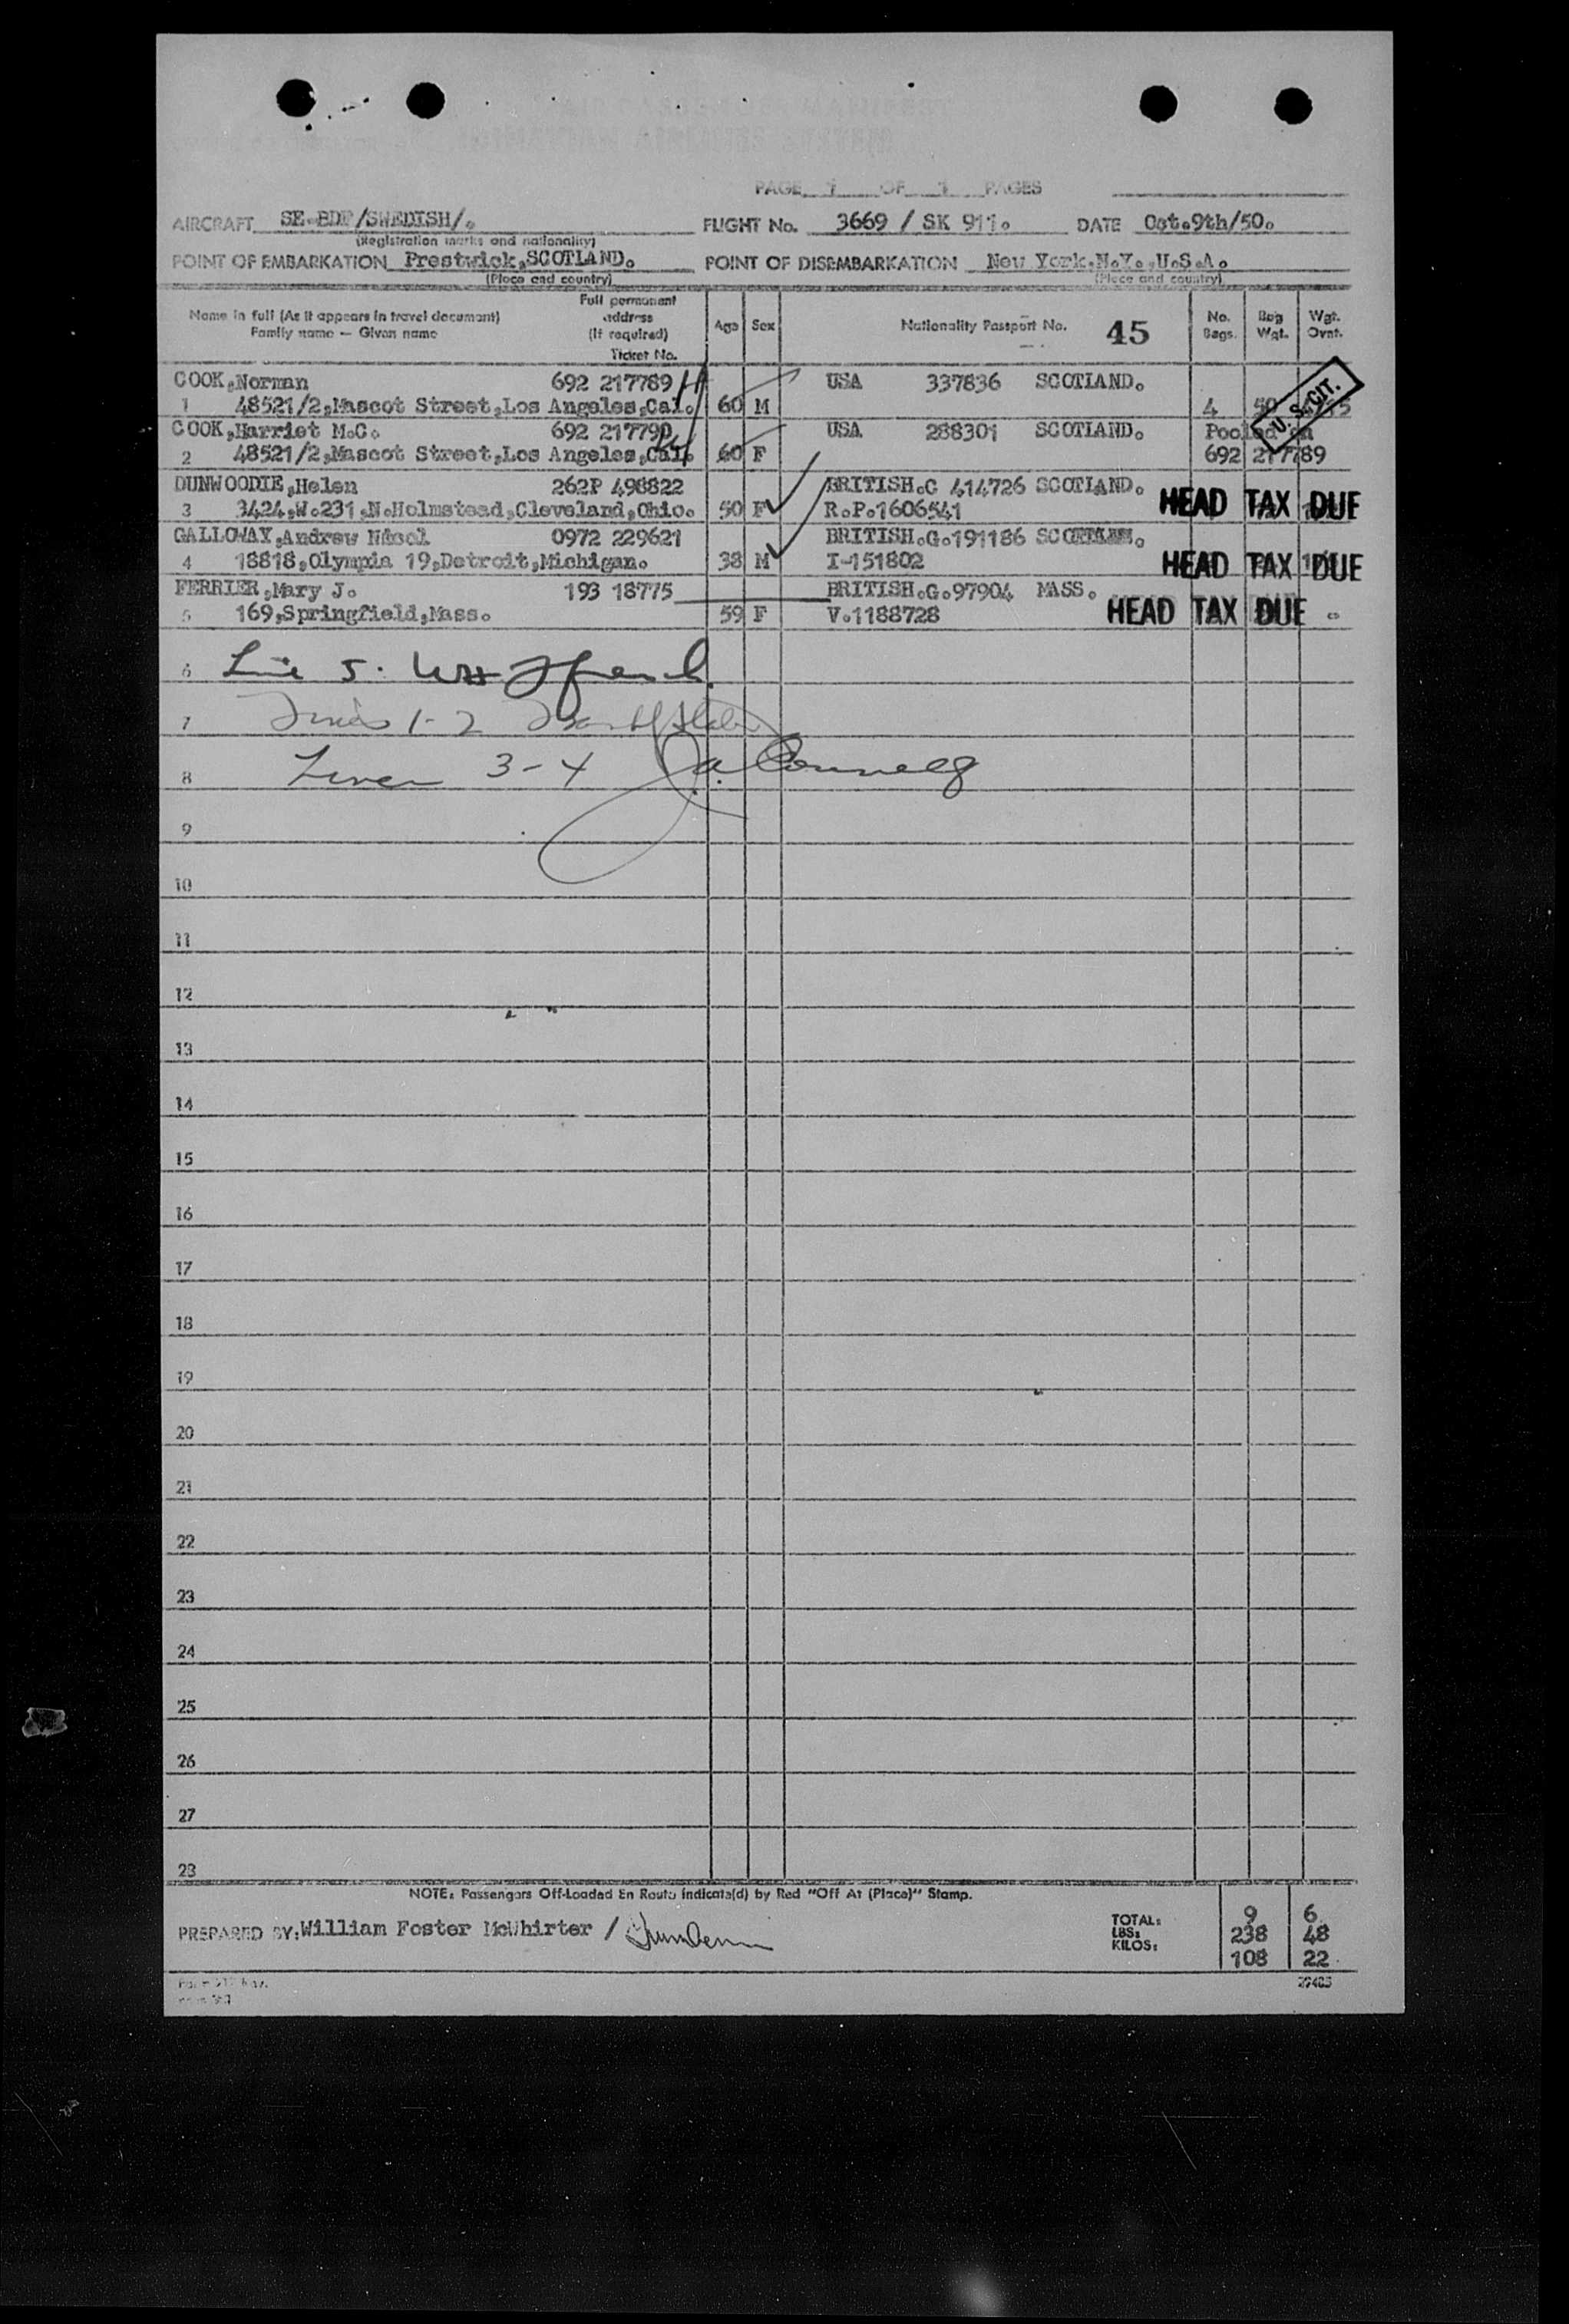 PAGE 1 OF 1 PAGES
AIRCRAFT SE-BDP/SWEDISH/. FLIGHT No. 3669 / SK 911. DATE Oct.9th/50.
(Registration marks and nationality)
POINT OF EMBARKATION Prestwick,SCOTLAND. POINT OF DISEMBARKATION New York.N.Y.,U.S.A.
(Place and country) (Place and country)
Name in full (As it appears in travel document) Family name — Given name Full permanent address (If required) Ticket No. Age Sex Nationality Passport No. 45 No. Bags. Bag Wgt. Wgt. Ovnt.
COOK,Norman 692 217789 USA 337836 SCOTLAND.
1 48521/2,Mascot Street,Los Angeles,Cal. 60 M 4 50
U. S. CIT.
COOK,Harriet M.C. 692 217790 USA 288301 SCOTLAND. Pooled on
2 48521/2,Mascot Street,Los Angeles,Cal. 60 F 692 217789
DUNWOODIE,Helen 262P 498822 BRITISH.C 414726 SCOTLAND.
3 3424,W.231,N.Holmstead,Cleveland,Ohio. 50 F R.P.1606541 HEAD TAX DUE
GALLOWAY,Andrew Nicol 0972 229621 BRITISH.G.191186 SCOTLAND.
4 18818,Olympia 19,Detroit,Michigan. 38 M I-151802 HEAD TAX DUE
FERRIER,Mary J. 193 18775 BRITISH.G.97904 MASS.
5 169,Springfield,Mass. 59 F V.1188728 HEAD TAX DUE
6 5.
7 1-2
8 3-4
9
10
11
12
13
14
15
16
17
18
19
20
21
22
23
24
25
26
27
28
NOTE: Passengers Off-Loaded En Route indicate(d) by Red "Off At (Place)" Stamp.
PREPARED BY: William Foster McWhirter /
TOTAL: 9 6
LBS: 238 48
KILOS: 108 22